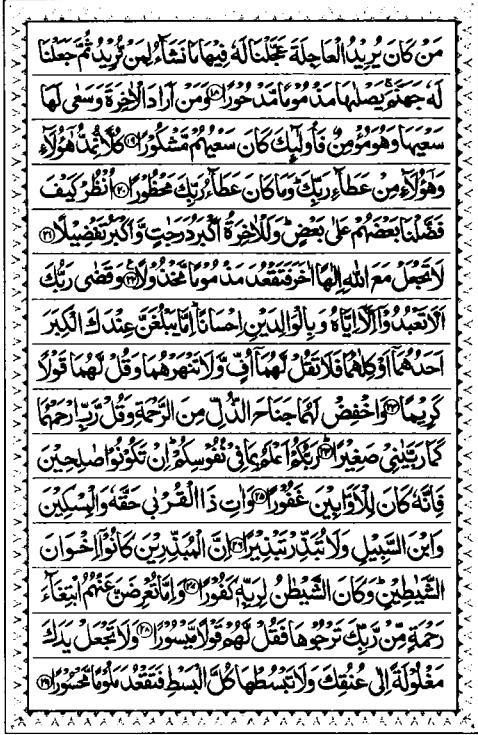 مَنْ كَانَ يُرِيْدُ الْعَاجِلَةَ عَجَّلْنَا لَهٗ فِيْهَا مَا نَشَآءُ لِمَنْ نُّرِيْدُ ثُمَّ جَعَلْنَا
لَهٗ جَهَنَّمَ ۚ يَصْلٰىهَا مَذْمُوْمًا مَّدْحُوْرًا ۝۱۸ وَمَنْ اَرَادَ الْاٰخِرَةَ وَسَعٰى لَهَا
سَعْيَهَا وَهُوَ مُؤْمِنٌ فَاُولٰٓئِكَ كَانَ سَعْيُهُمْ مَّشْكُوْرًا ۝۱۹ كُلًّا نُّمِدُّ هٰٓؤُلَآءِ
وَهٰٓؤُلَآءِ مِنْ عَطَآءِ رَبِّكَ ؕ وَمَا كَانَ عَطَآءُ رَبِّكَ مَحْظُوْرًا ۝۲۰ اُنْظُرْ كَيْفَ
فَضَّلْنَا بَعْضَهُمْ عَلٰى بَعْضٍ ؕ وَلَلْاٰخِرَةُ اَكْبَرُ دَرَجٰتٍ وَّاَكْبَرُ تَفْضِيْلًا ۝۲۱
لَا تَجْعَلْ مَعَ اللّٰهِ اِلٰهًا اٰخَرَ فَتَقْعُدَ مَذْمُوْمًا مَّخْذُوْلًا ۝۲۲ وَقَضٰى رَبُّكَ
اَلَّا تَعْبُدُوْٓا اِلَّآ اِيَّاهُ وَبِالْوَالِدَيْنِ اِحْسَانًا ؕ اِمَّا يَبْلُغَنَّ عِنْدَكَ الْكِبَرَ
اَحَدُهُمَآ اَوْ كِلٰهُمَا فَلَا تَقُلْ لَّهُمَآ اُفٍّ وَّلَا تَنْهَرْهُمَا وَقُلْ لَّهُمَا قَوْلًا
كَرِيْمًا ۝۲۳ وَاخْفِضْ لَهُمَا جَنَاحَ الذُّلِّ مِنَ الرَّحْمَةِ وَقُلْ رَّبِّ ارْحَمْهُمَا
كَمَا رَبَّيٰنِيْ صَغِيْرًا ۝۲۴ رَبُّكُمْ اَعْلَمُ بِمَا فِيْ نُفُوْسِكُمْ ؕ اِنْ تَكُوْنُوْا صٰلِحِيْنَ
فَاِنَّهٗ كَانَ لِلْاَوَّابِيْنَ غَفُوْرًا ۝۲۵ وَاٰتِ ذَا الْقُرْبٰى حَقَّهٗ وَالْمِسْكِيْنَ
وَابْنَ السَّبِيْلِ وَلَا تُبَذِّرْ تَبْذِيْرًا ۝۲۶ اِنَّ الْمُبَذِّرِيْنَ كَانُوْٓا اِخْوَانَ
الشَّيٰطِيْنِ ؕ وَكَانَ الشَّيْطٰنُ لِرَبِّهٖ كَفُوْرًا ۝۲۷ وَاِمَّا تُعْرِضَنَّ عَنْهُمُ ابْتِغَآءَ
رَحْمَةٍ مِّنْ رَّبِّكَ تَرْجُوْهَا فَقُلْ لَّهُمْ قَوْلًا مَّيْسُوْرًا ۝۲۸ وَلَا تَجْعَلْ يَدَكَ
مَغْلُوْلَةً اِلٰى عُنُقِكَ وَلَا تَبْسُطْهَا كُلَّ الْبَسْطِ فَتَقْعُدَ مَلُوْمًا مَّحْسُوْرًا ۝۲۹